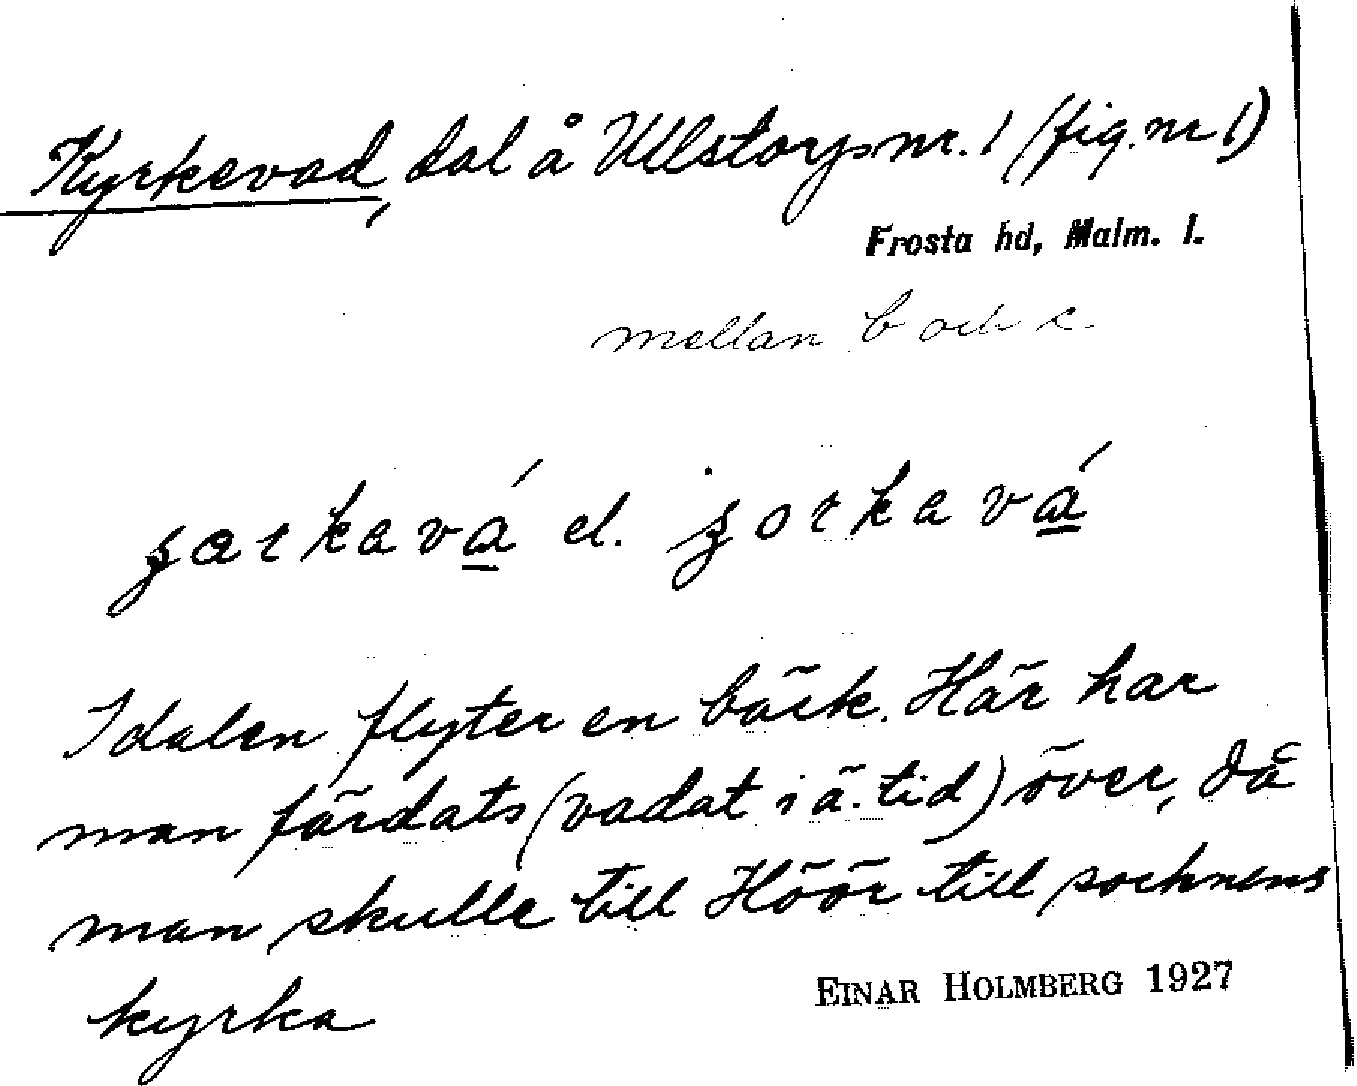 Kyrkevad, dal å Ullstorps nr. 1 (fig. nr 1)
Frosta hd, Malm. l.
mellan b och c.
el.
I dalen flyter en bäck. Här har
man färdats (vadat i ä. tid) över, då
man skulle till Höör till socknens
kyrka
EINAR HOLMBERG 1927